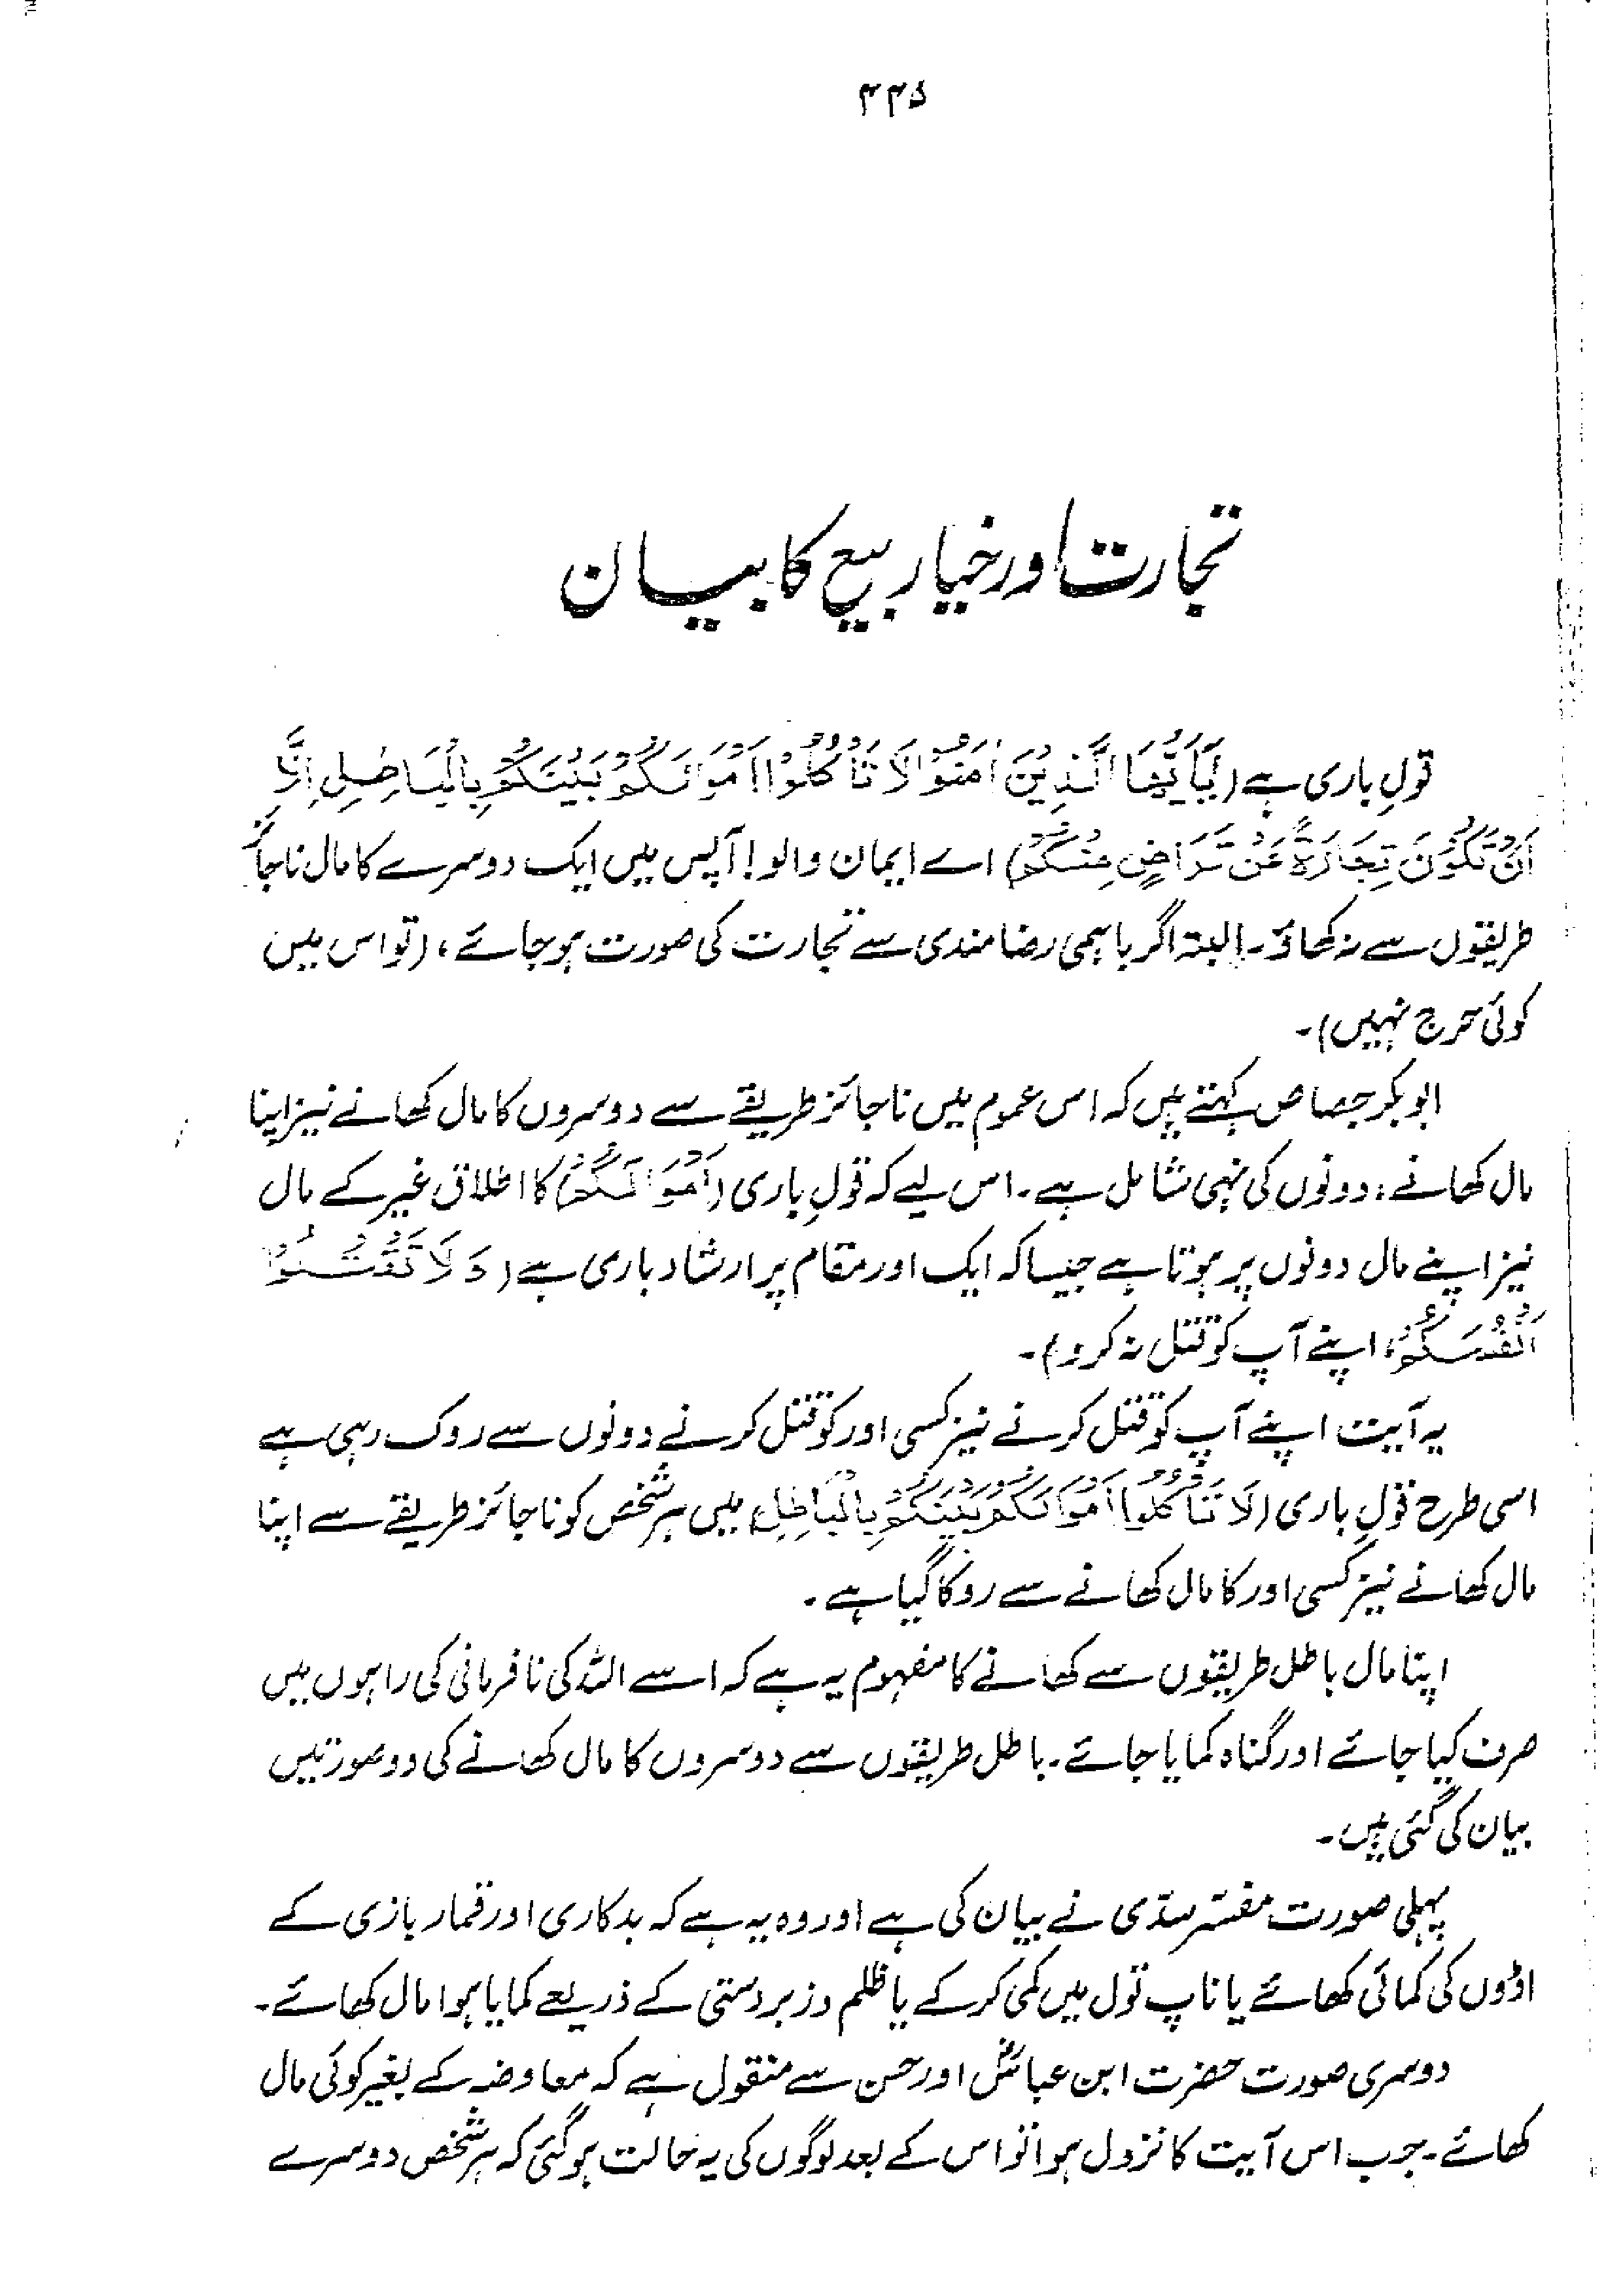 ۴۴۵
تجارت اور خیار بیع کا بیان
قولِ باری ہے (يَا أَيُّهَا الَّذِيْنَ اٰمَنُوْا لَا تَأْكُلُوْا اَمْوَالَكُمْ بَيْنَكُمْ بِالْبَاطِلِ اِلَّا
اَنْ تَكُوْنَ تِجَارَةً عَنْ تَرَاضٍ مِنْكُمْ) اے ایمان والو! آپس میں ایک دوسرے کا مال ناجائز
طریقوں سے نہ کھاؤ۔ البتہ اگر باہمی رضامندی سے تجارت کی صورت ہو جائے، (تو اس میں
کوئی حرج نہیں)۔
ابوبکر جصاص کہتے ہیں کہ اس عموم میں ناجائز طریقے سے دوسروں کا مال کھانے نیز اپنا
مال کھانے، دونوں کی نہی شامل ہے۔ اس لیے کہ قولِ باری (اَمْوَالَكُمْ) کا اطلاق غیر کے مال
نیز اپنے مال دونوں پر ہوتا ہے جیسا کہ ایک اور مقام پر ارشاد باری ہے (وَلَا تَقْتُلُوْا
اَنْفُسَكُمْ، اپنے آپ کو قتل نہ کرو)۔
یہ آیت اپنے آپ کو قتل کرنے نیز کسی اور کو قتل کرنے دونوں سے روک رہی ہے
اسی طرح قولِ باری (لَا تَأْكُلُوْا اَمْوَالَكُمْ بَيْنَكُمْ بِالْبَاطِلِ) میں ہر شخص کو ناجائز طریقے سے اپنا
مال کھانے نیز کسی اور کا مال کھانے سے روکا گیا ہے۔
اپنا مال باطل طریقوں سے کھانے کا مفہوم یہ ہے کہ اسے اللہ کی نافرمانی کی راہوں میں
صرف کیا جائے اور گناہ کمایا جائے۔ باطل طریقوں سے دوسروں کا مال کھانے کی دو صورتیں
بیان کی گئی ہیں۔
پہلی صورت مفسر سدّی نے بیان کی ہے اور وہ یہ ہے کہ بدکاری اور قمار بازی کے
اڈوں کی کمائی کھائے یا ناپ تول میں کمی کر کے یا ظلم و زبردستی کے ذریعے کمایا ہوا مال کھائے۔
دوسری صورت حضرت ابن عباسؓ اور حسن سے منقول ہے کہ معاوضہ کے بغیر کوئی مال
کھائے۔ جب اس آیت کا نزول ہوا تو اس کے بعد لوگوں کی یہ حالت ہو گئی کہ ہر شخص دوسرے